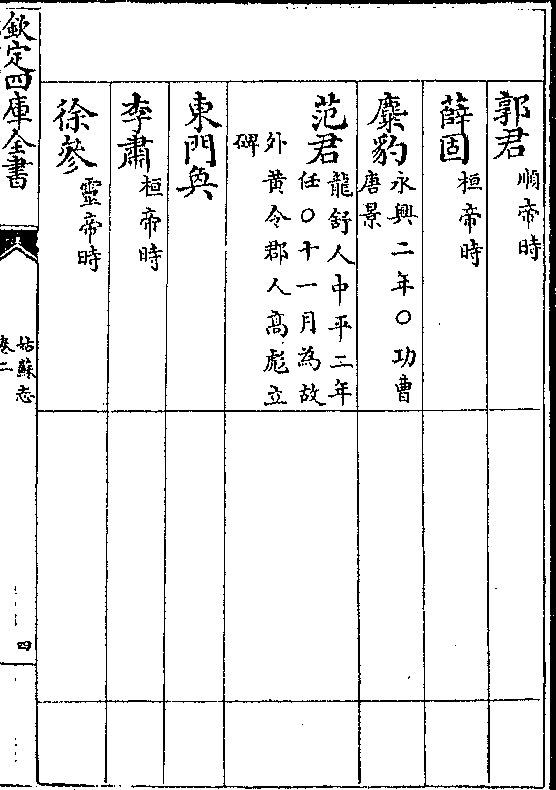 郭君順帝時
薛固桓帝時
糜豹永興二年○功曹
唐景
范君龍舒人中平二年
任○十一月為故
外黄令郡人髙彪立
碑
東門奐
李肅桓帝時
徐參靈帝時
欽定四庫全書
姑蘇志
卷二
四